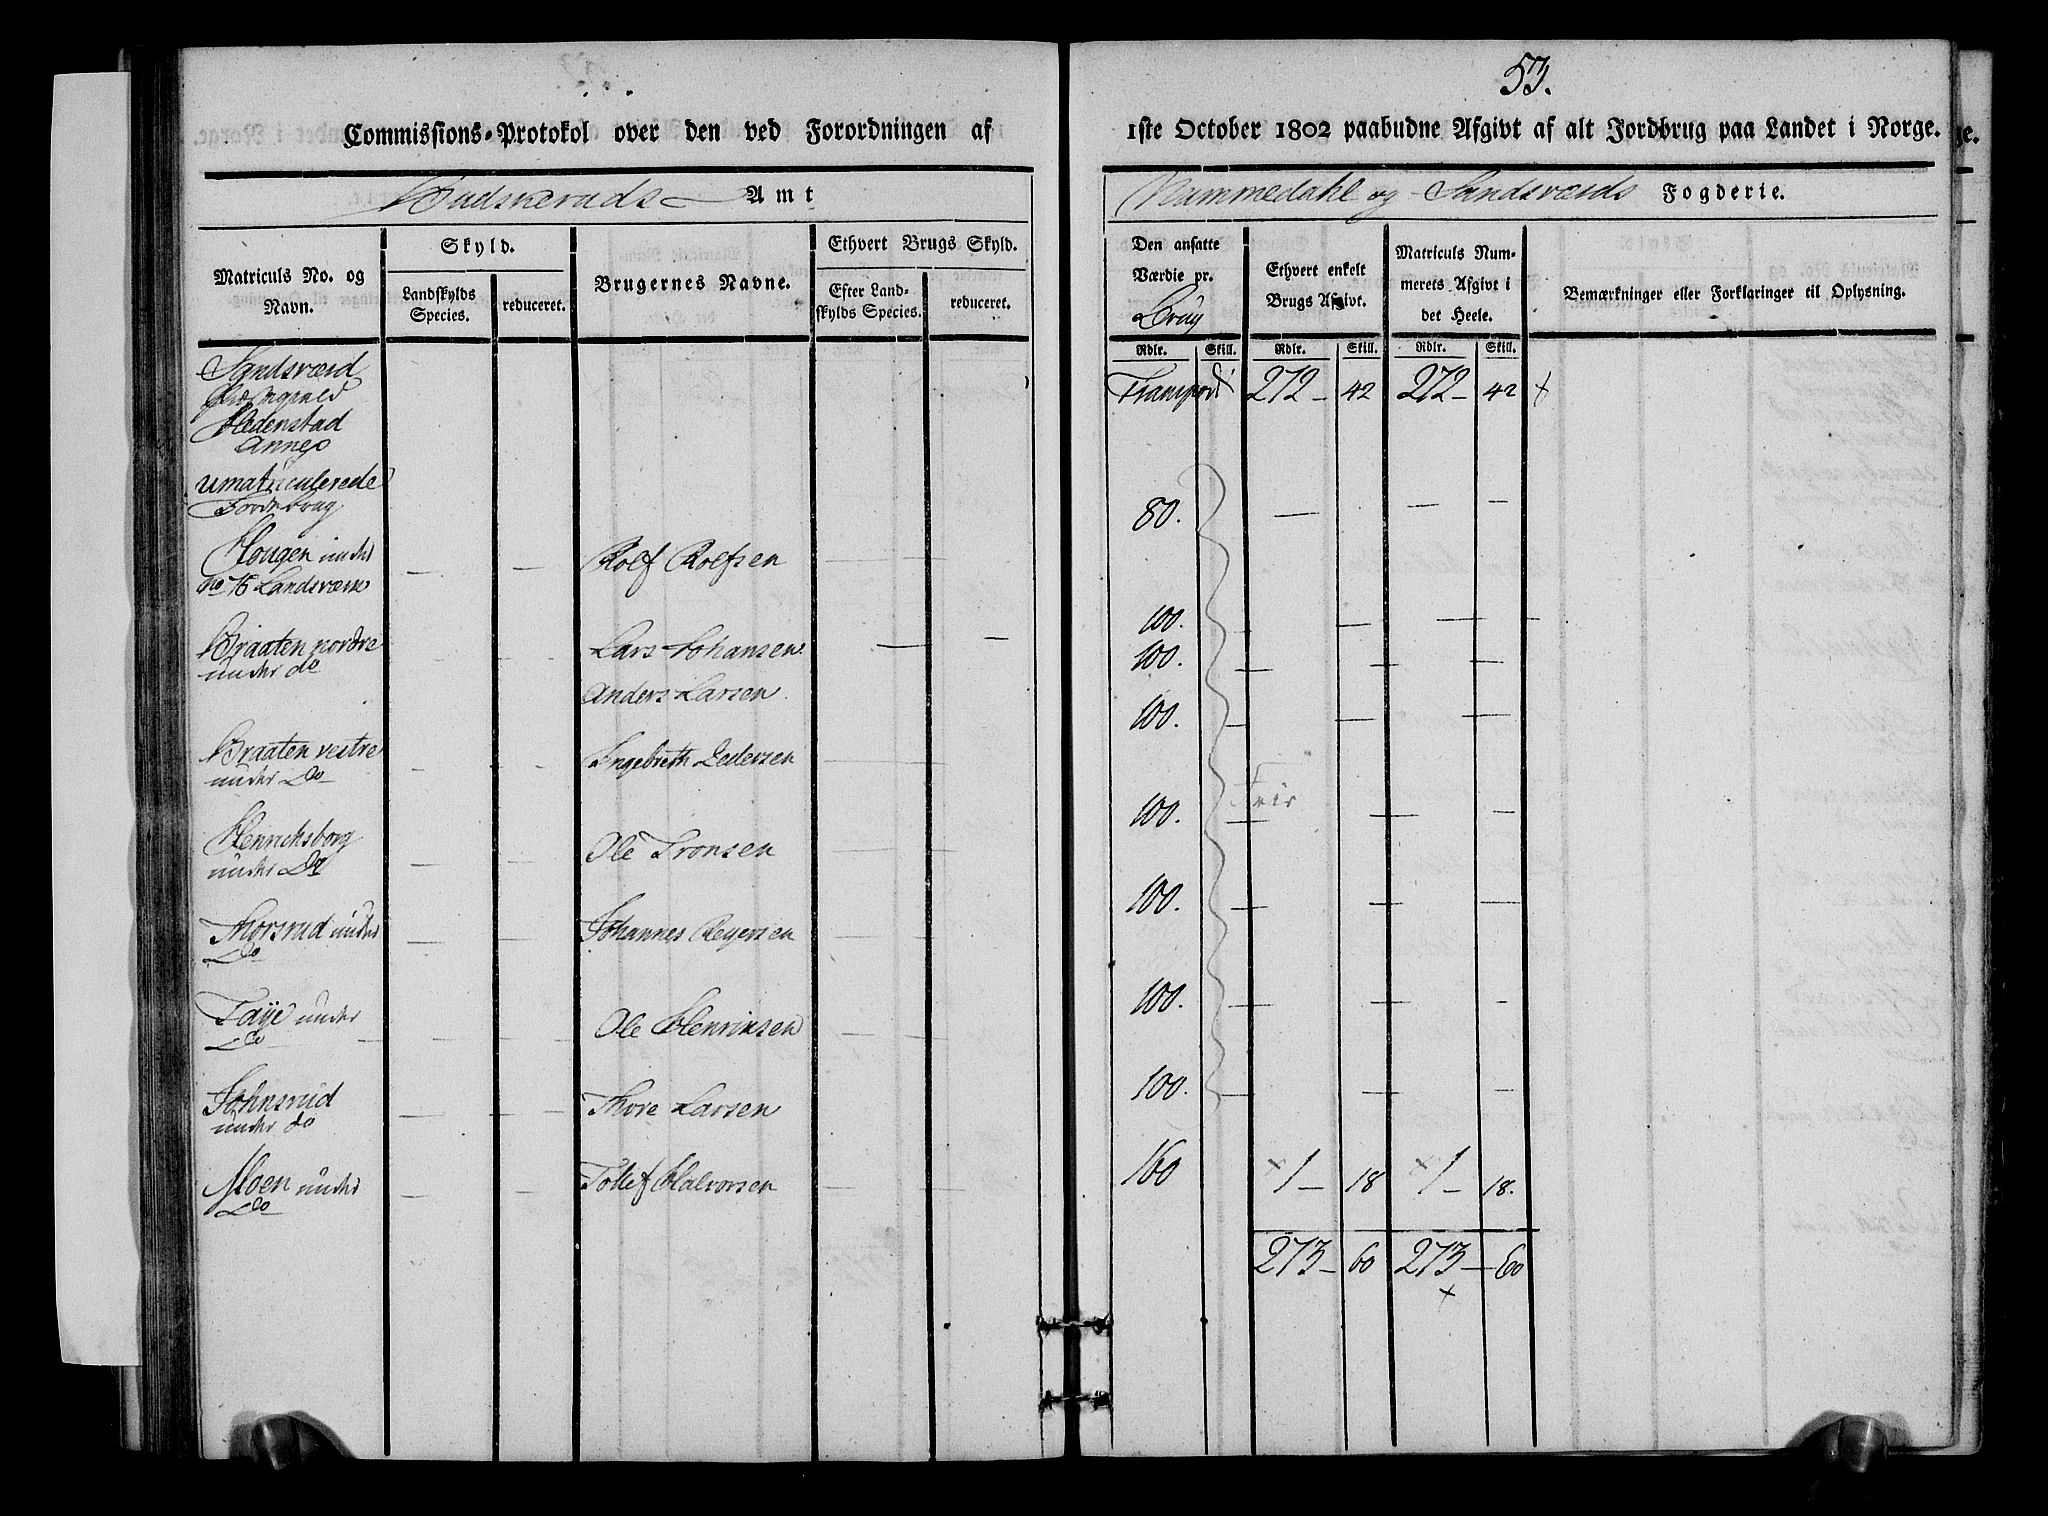 53.
Commissions-Protokol over den ved Forordningen af
1ste October 1802 paabudne Afgivt af alt Jordbrug paa Landet i Norge.
Budskeruds Amt
Nummedahl og Sandsværds Fogderie.
Matriculs No. og Navn.
Skyld.
Landskylds Species.
reduceret.
Brugernes Navne.
Ethvert Brugs Skyld.
Efter Landskylds Species.
reduceret.
Den ansatte Værdie pr. Brug
Ethvert enkelt Brugs Afgivt.
Matriculs Nummerets Afgivt i det Heele.
Bemærkninger eller Forklaringer til Oplysning.
Rdlr. Skill. Rdlr. Skill. Rdlr. Skill.
Sandsværd
Hedenstad
Annex
Transport 272 – 42 272 – 42
umatriculerede
Jordebrug
Hougen under
No 16 Landsværk
Rolf Rolfsen
80.
Braaten nordre
under do
Lars Johansen
100.
Anders Larsen
100.
Braaten vestre
under Do
Ingebreth Pedersen
100.
Henrichsborg
under Do
Ole Tronsen
100.
Frir
Thorsrud under
Do
Johannes Reyersen
100.
Taye under
Do
Ole Henriksen
100.
Johnsrud
under do
Thore Larsen
100.
Moen under
Do
Tollef Halvorsen
160 1 – 18 1 – 18.
273 – 60 273 – 60